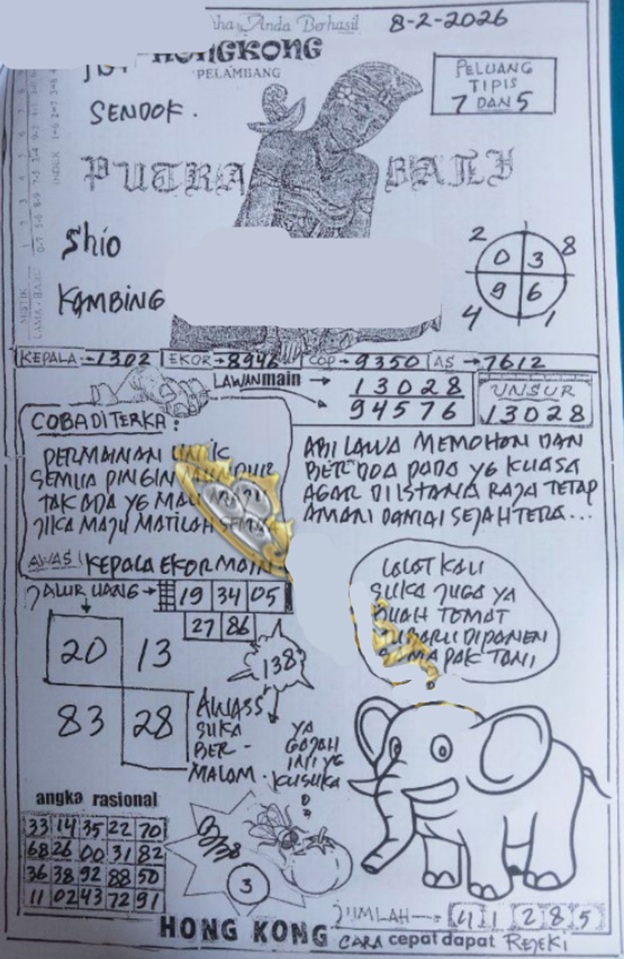 Anda Berhasil
8-2-2026
HONGKONG
PELAMBANG
PELUANG
TIPIS
7 DAN 5
SENDOK.
PUTRA BALI
Shio
Kambing
2 8
0 3
9 6
4 1
KEPALA→1302 EKOR→8946 COP→9350 AS→7612
LAWAN main → 13028
94576
UNSUR
13028
COBA DITERKA :
PERMAINAN UNIK
SEMUA PINGIN
TAK ADA YG MAU
JIKA MAJU MATILAH
AWAS! KEPALA EKOR MAIN
ABI LAWA MEMOHON DAN
BERDOA PADA YG KUASA
AGAR DI ISTANA RAJA TETAP
AMAN DAMAI SEJAHTERA...
JALUR UANG → 19 34 05
27 86
20 13
83 28
138
AWASS
SUKA
BER-
MALAM.
YA
GAJAH
INI YG
KUSUKA
LALAT KALI
SUKA JUGA YA
BUAH TOMAT
DIPANEN
PAK TANI
angka rasional
33 14 35 22 70
68 26 00 31 82
36 38 92 88 50
11 02 43 72 91
3
JUMLAH → 41 285
HONG KONG CARA cepat dapat REJEKI